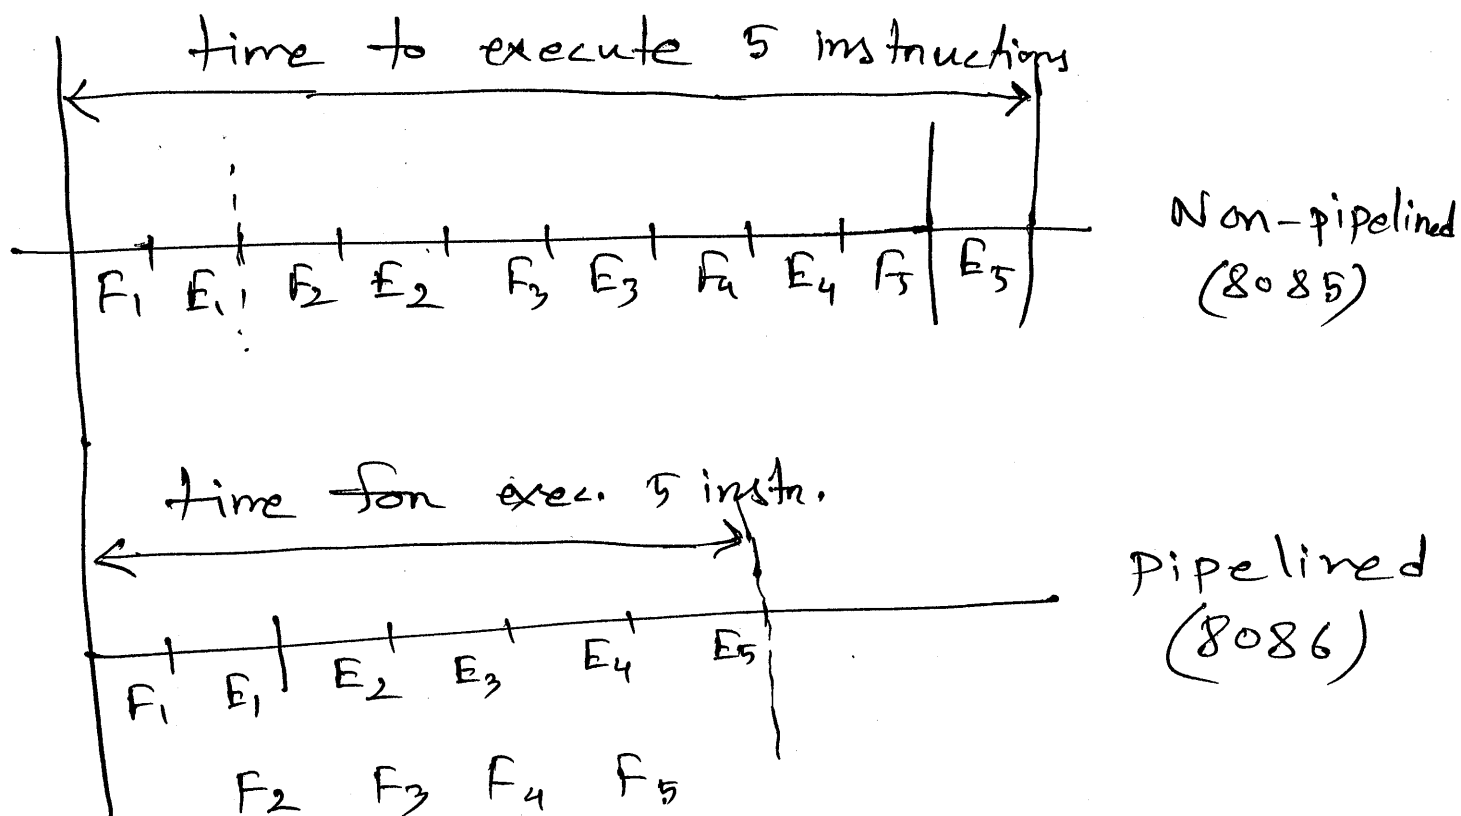 time to execute 5 instructions
F1 E1 F2 E2 F3 E3 F4 E4 F5 E5
Non-pipelined
(8085)
time for exec. 5 instr.
F1 E1 E2 E3 E4 E5
F2 F3 F4 F5
Pipelined
(8086)